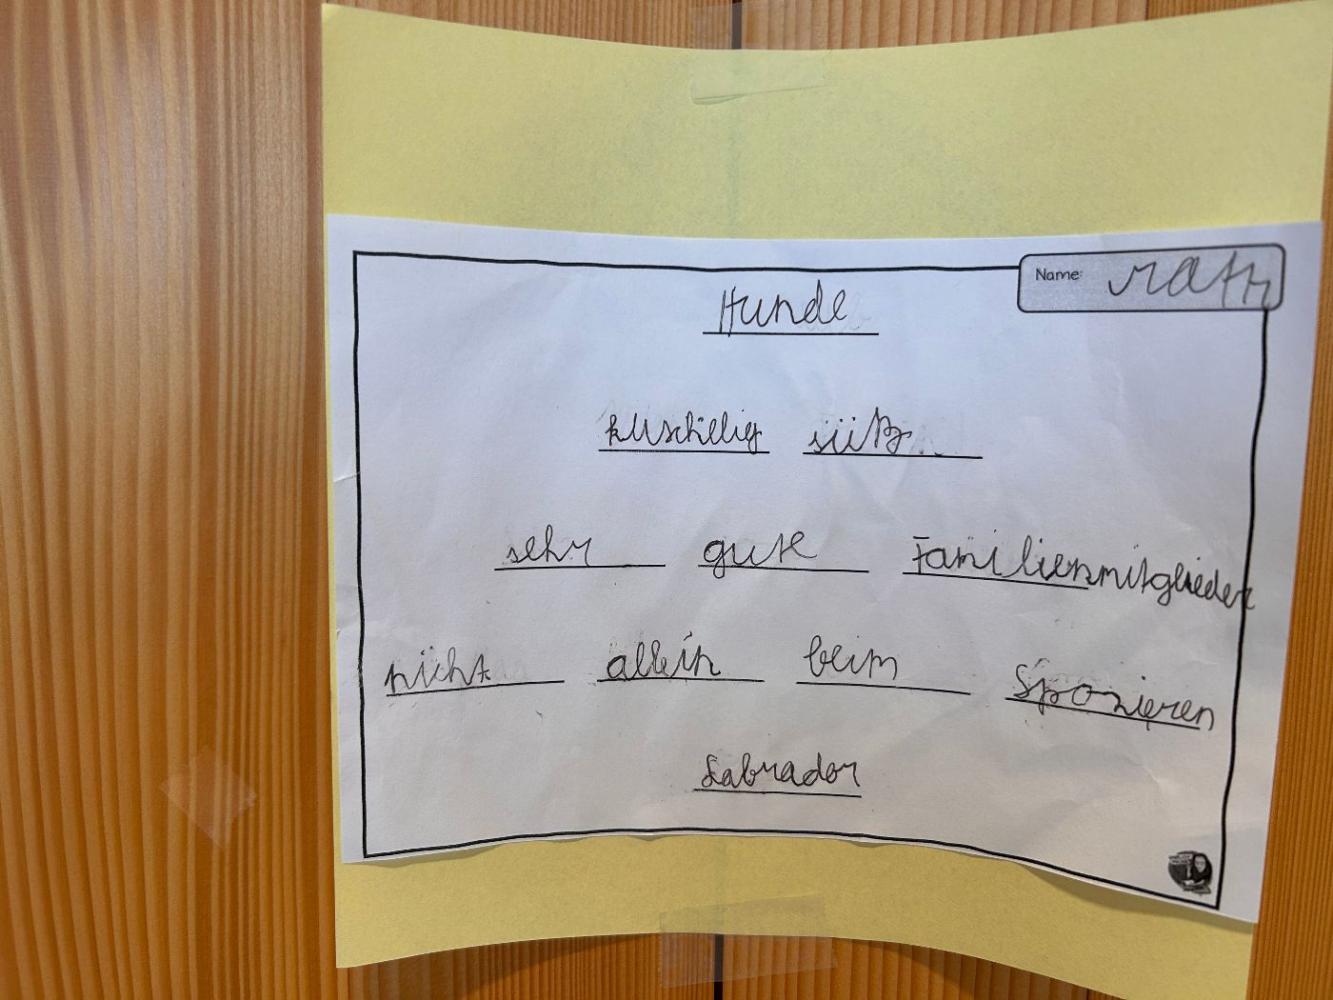 Name:
Hunde
kuschelig süß
sehr gute Familienmitglieder
nicht allein beim
Spazieren
Labrador